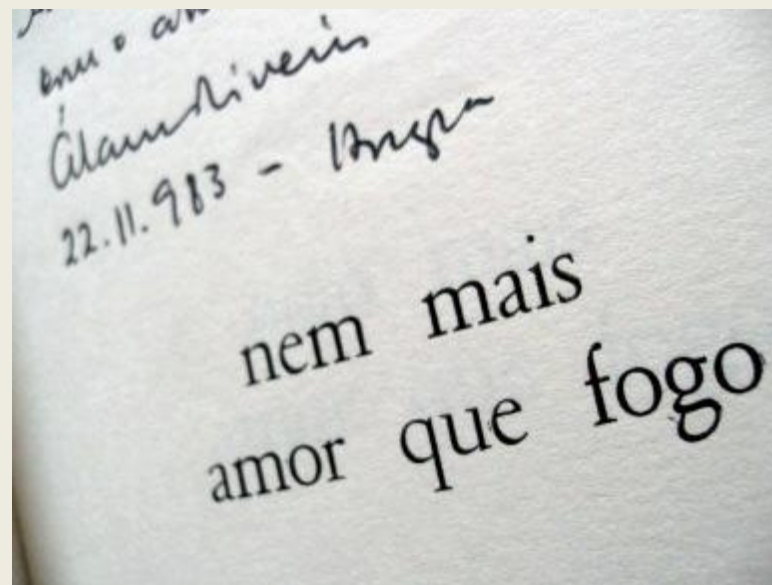 com o
Álamo Oliveira
22.11.983 - Angra
nem mais
amor que fogo